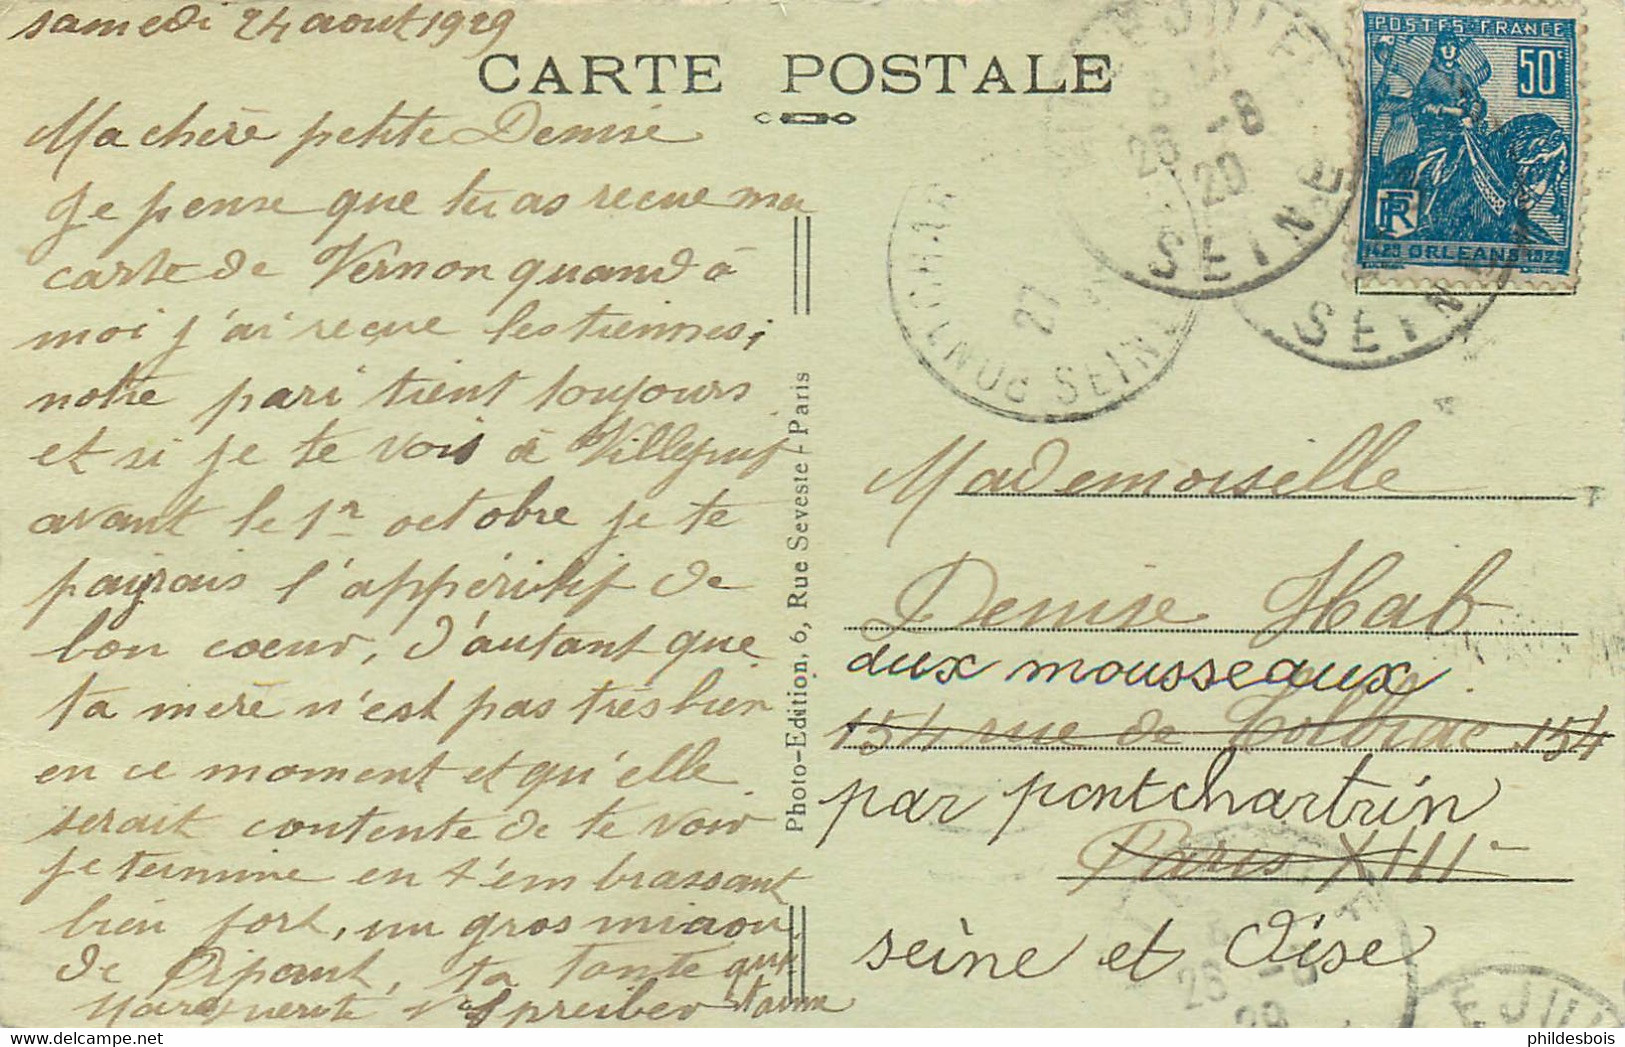 samedi 24 aout 1929
CARTE POSTALE
Ma chère petite Denise
je pense que tu as recue ma
carte de Vernon quand à
moi j'ai recue les tiennes,
notre pari tient toujours
et si je te vois à Villejuif
avant le 1er octobre je te
pairais l'appéritif de
bon coeur, d'autant que
ta mère n'est pas très bien
en ce moment et qu'elle
serait contente de te voir
je termine en t'embrassant
bien fort, un gros miaou
de ta tante qui
t'aime
Marguerite Spreiber
Photo-Edition, 6, Rue Seveste - Paris
POSTES FRANCE
50c
RF
1429 ORLEANS 1929
VILLEJUIF
26 -8
29
SEINE
SEINE
27
SEINE
Mademoiselle
Denise Hab
aux mousseaux
154 rue de Tolbiac 154
par pontchartrin
Paris XIIIe
seine et Oise
26 -8
29
EJUI
phildesbois